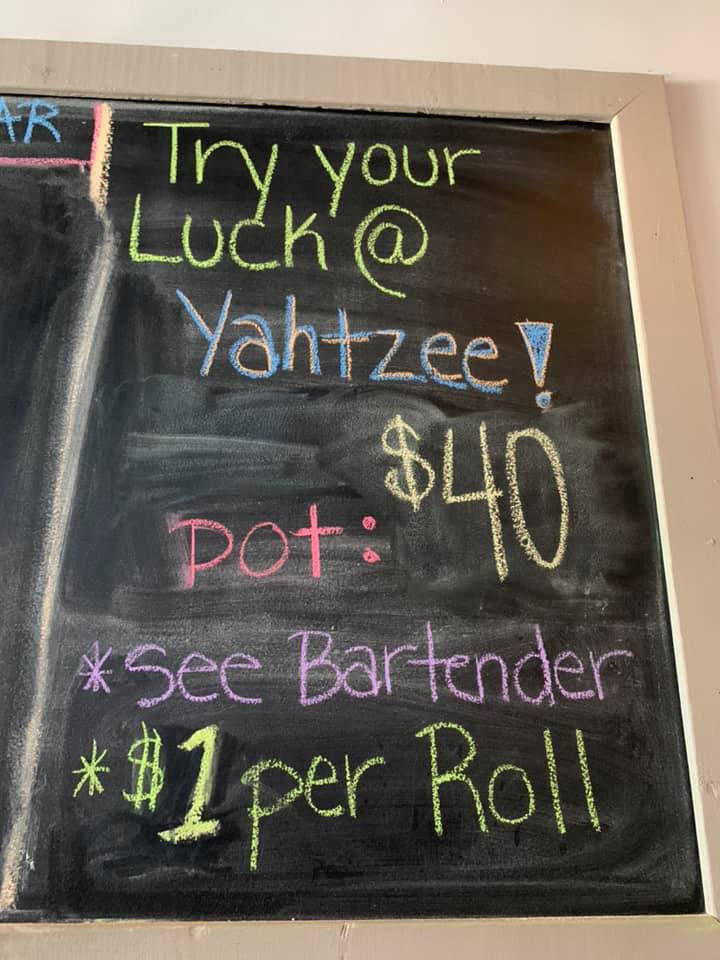 AR
Try your
Luck @
Yahtzee!
pot: $40
*See Bartender
*$1 per Roll